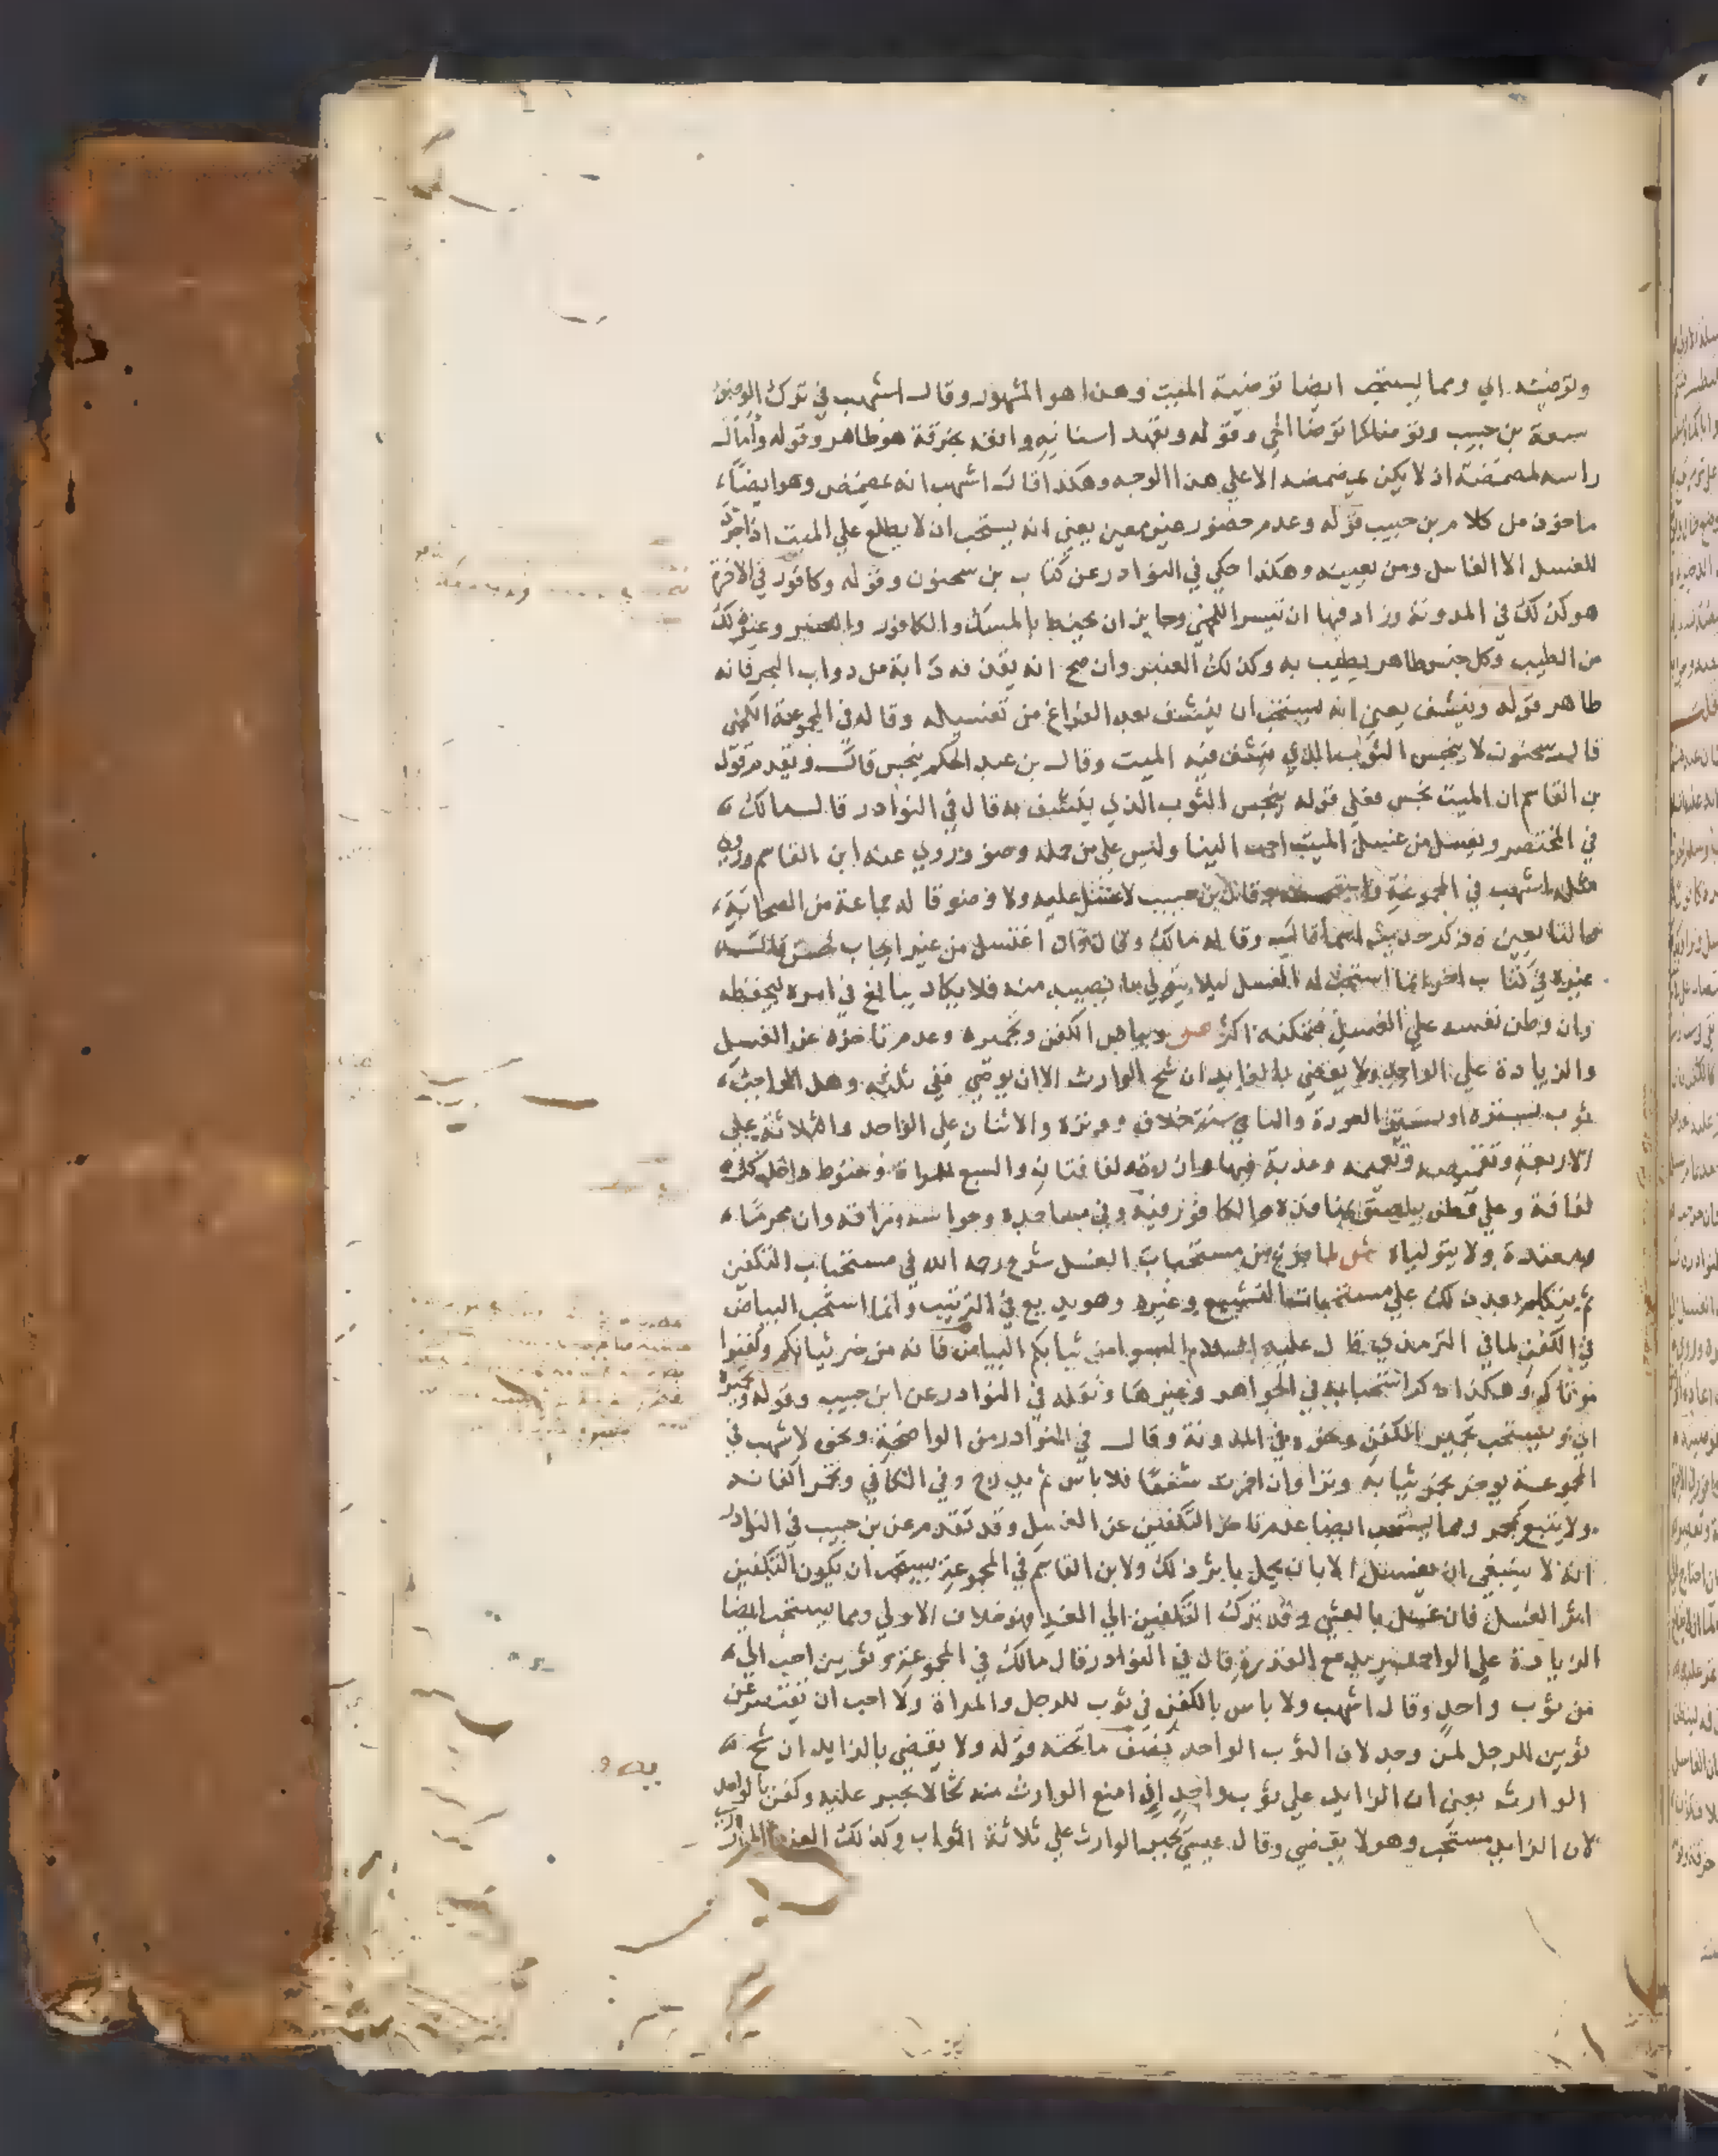 وتوضيته اي ومما يستحب ايضا توضية الميت وهذا هو المشهور وقال اشهب في ترك الوضوء
سعة بن حبيب ويوضا كما توضا الحي وقوله وتعهد اسنانه وانفه بخرقة هو ظاهر وقوله وامال
راسه لمضمضة اذ لا يمكن مضمضه الا علي هذا الوجه وهكذا قال اشهب انه يمضمض وهو ايضا
ماخوذ من كلام بن حبيب قوله وعدم حضور غير معين يعني انه يستحب ان لا يطلع علي الميت اذا جرد
للغسل الا الغاسل ومن يعينه وهكذا حكي في النوادر عن كتاب بن سحنون وقوله وكافور في الاخرة
هو كذلك في المدونة وزاد فيها ان تيسر اللخمي وجايز ان يحنط بالمسك والكافور والعنبر وغير ذلك
من الطيب وكل جنس طاهر يطيب به وكذلك العنبر وان صح انه يقذفه دابة من دواب البحر فانه
طاهر قوله وينشف يعني انه يستحب ان ينشف بعد الفراغ من تغسيله وقاله في المجموعة اللخمي
قال سحنون لا ينجس الثوب الذي ينشف فيه الميت وقال بن عبد الحكم ينجس قال وتقدم قول
بن القاسم ان الميت نجس فعلي قوله ينجس الثوب الذي ينشف به قال في النوادر قال مالك
في المختصر ويغسل من غسل الميت احب الينا وليس علي من حمله وضو وروي عنه ابن القاسم وروي
مثله اشهب في المجموعة قال بن حبيب لا غسل عليه ولا وضو قاله جماعة من الصحابة
والتابعين وذكر حديث اسما قالت وقاله مالك وقال وان اغتسل من غير ايجاب فحسن قال
غيره في كتاب اخر انما استحب له الغسل ليلا يتوقي ما يصيبه منه فلا يكاد يبالغ في امره ليحفظه
وان وطن نفسه علي الغسل فتمكنه اكثر ص وبياض الكفن وتجميره وعدم تاخره عن الغسل
والزيادة علي الواحد ولا يقضي بالزايد ان شح الوارث الا ان يوصي ففي ثلثه وهل الواجب
ثوب يستره او ستر العورة والباقي سنة خلاف ووتره والاثنان علي الواحد والثلاثة علي
الاربعة وتقميصه وتعميمه وعذبة فيها وازرة ولفافتان والسبع للمراة وحنوط داخل كل
لفافة وعلي قطن يلصق بمنافذه والكافور فيه وفي مساجده وحواسه ومراقه وان محرما
ومعتدة ولا يتولياه ش لما فرغ من مستحبات الغسل شرع رحمه الله في مستحباب التكفين
ثم يتكلم بعد ذلك علي مستحبات التشييع وغيره وهو بديع في الترتيب وانما استحب البياض
في الكفن لما في الترمذي قال عليه السلام البسوا من ثيابكم البياض فانه من خير ثيابكم وكفنوا
موتاكم وهكذا ذكر استحبابه في الجواهر وغيرها ونقله في النوادر عن ابن حبيب وقوله وتجميره
اي ويستحب تجمير الكفن ونحوه في المدونة وقال في النوادر من الواضحة ونحوه لاشهب في
المجموعة يوخذ بجمر ثيابه وترا وان اجمرت شفعا فلا باس ثم يدرج وفي الكافي وتجمر اكفانه
ولا يتبع بجمر ومما يستحب ايضا عدم تاخر التكفين عن الغسل وقد تقدم عن بن حبيب في النوادر
انه لا ينبغي ان يغسل الا بان يحمل باثر ذلك ولابن القاسم في المجموعة يستحب ان يكون التكفين
اثر الغسل فان غسل بالعشي وقد ترك التكفين الي الغد فهو خلاف الاولي ومما يستحب ايضا
الزيادة علي الواحد يريد مع القدرة قال في النوادر قال مالك في المجموعة وثوبين احب الي
من ثوب واحد وقال اشهب ولا باس بالكفن في ثوب للرجل والمراة ولا احب ان يقتصر عن
ثوبين للرجل لمن وجد لان الثوب الواحد يصف ما تحته قوله ولا يقضي بالزايد ان شح
الوارث يعني ان الزايد علي ثوب واحد اذا منع الوارث منه شحا لا يجبر عليه وكفن بالواحد
لان الزايد مستحب وهو لا يقضي وقال عيسي يجبر الوارث علي ثلاثة اثواب وكذلك